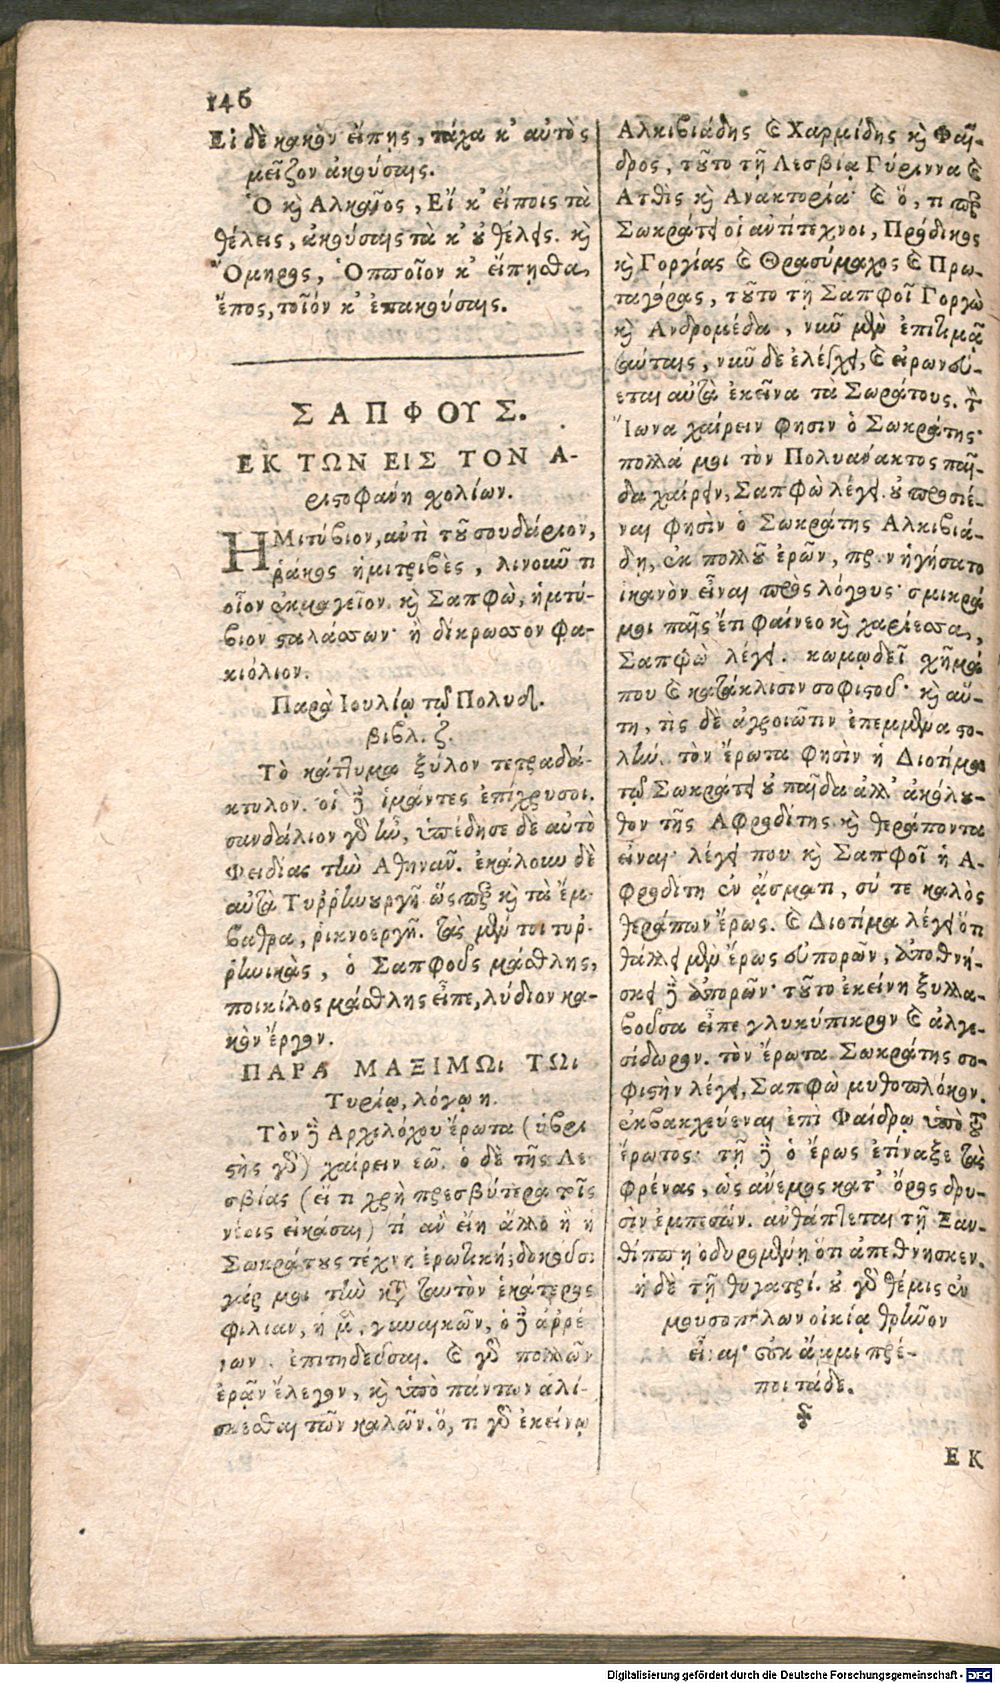 146
Εἰ δὲ κακὸν εἴπῃς, τάχα κ' αὐτὸς
μεῖζον ἀκούσαις.
Ὁ καὶ Ἀλκαῖος, Εἴ κ' εἴποις τὰ
θέλεις, ἀκούσαις τὰ κ' οὐ θέλεις. καὶ
Ὅμηρος, Ὁπποῖον κ' εἴπῃσθα,
ἔπος, τοῖόν κ' ἐπακούσαις.
ΣΑΠΦΟΥΣ.
ΕΚ ΤΩΝ ΕΙΣ ΤΟΝ Α-
ριστοφάνη χολίων.
ΗΜιτύβιον, ἀντὶ τοῦ σουδάριον,
ῥάκος ἡμιτριβὲς, λινοῦν τι
οἷον ἐκμαγεῖον. καὶ Σαπφὼ, ἡμιτύ-
βιον σαλάσσων· ἢ δίκρωσσον φα-
κιόλιον.
Παρὰ Ἰουλίῳ τῷ Πολυδ.
βιβλ. ζ.
Τὸ κάτλυμα ξύλον τετραδά-
κτυλον. οἱ δὲ ἱμάντες ἐπίχρυσοι.
σανδάλιον γὰρ ἦν, ὑπέδησε δὲ αὐτὸ
Φειδίας τὴν Ἀθηνᾶν. ἐκάλουν δὲ
αὐτὰ Τυῤῥηνουργῆ ὥσπερ καὶ τὰ ἔμ-
βαθρα, ῥικνοεργῆ. τὰς μέν τοι τυῤ-
ῥηνικὰς, ὁ Σαπφοῦς μάσθλης,
ποικίλος μάσθλης εἶπε, λύδιον κα-
κὸν ἔργον.
ΠΑΡΑ ΜΑΞΙΜΩι ΤΩι
Τυρίῳ, λόγῳ η.
Τὸν δὲ Ἀρχιλόχου ἔρωτα (ὑβρι
στὴς γὰρ) χαίρειν ἐῶ. ὁ δὲ τῆς Λε
σβίας (εἴ τι χρὴ πρεσβύτερα τοῖς
νέοις εἰκάσαι) τί ἂν εἴη ἄλλο ἢ ἡ
Σωκράτους τέχνη ἐρωτική; δοκοῦσι
γάρ μοι τὴν κατὰ ταυτὸν ἑκάτερος
φιλίαν, ἡ μὲν, γυναικῶν, ὁ δὲ ἀῤῥέ
νων. ἐπιτηδεῦσαι. καὶ γὰρ πολλῶν
ἐρᾷν ἔλεγον, καὶ ὑπὸ πάντων ἁλί-
σκεσθαι τῶν καλῶν. ὅ, τι γὰρ ἐκείνῳ
Ἀλκιβιάδης καὶ Χαρμίδης καὶ Φαῖ-
δρος, τοῦτο τῇ Λεσβίᾳ Γύριννα καὶ
Ἀτθὶς καὶ Ἀνακτορία· καὶ ὅ, τι περ
Σωκράτει οἱ ἀντίτεχνοι, Πρόδικος
καὶ Γοργίας καὶ Θρασύμαχος καὶ Πρω-
ταγόρας, τοῦτο τῇ Σαπφοῖ Γοργὼ
καὶ Ἀνδρομέδα, νῦν μὲν ἐπιτιμᾷ
ταύταις, νῦν δὲ ἐλέγχει, καὶ εἰρωνεύ-
εται αὐτὰ ἐκεῖνα τὰ Σωράτους. τὸν
Ἴωνα χαίρειν φησὶν ὁ Σωκράτης·
πολλά μοι τὸν Πολυανακτος παῖ-
δα χαίρειν, Σαπφὼ λέγει. οὐ προσιέ-
ναι φησὶν ὁ Σωκράτης Ἀλκιβιά-
δη, ἐκ πολλοῦ ἐρῶν, πρὶν ἡγήσατο
ἱκανὸν εἶναι πρὸς λόγους· σμικρά
μοι παῖς ἔτι φαίνεο καὶ χαρίεσσα,
Σαπφὼ λέγει. κωμῳδεῖ χῆμά
που καὶ κατάκλισιν σοφιστοῦ· καὶ αὕ-
τη, τίς δὲ ἀγροιῶτιν ἐπεμμένα στο-
λήν. τὸν ἔρωτα φησὶν ἡ Διοτίμα
τῷ Σωκράτει οὐ παῖδα ἀλλ' ἀκόλου-
θον τῆς Ἀφροδίτης καὶ θεράποντα
εἶναι· λέγει που καὶ Σαπφοῖ ἡ Ἀ-
φροδίτη ἐν ᾄσματι, σύ τε καλὸς
θεράπων ἔρως. καὶ Διοτίμα λέγει ὅτι
θάλλει μὲν ἔρως εὐπορῶν, ἀποθνή-
σκει δὲ ἀπορῶν· τοῦτο ἐκείνη ξυλλα-
βοῦσα εἶπε γλυκύπικρον καὶ ἀλγε-
σίδωρον. τὸν ἔρωτα Σωκράτης σο-
φιστὴν λέγει, Σαπφὼ μυθοπλόκον.
ἐκβακχεύεναι ἐπὶ Φαίδρῳ ὑπὸ τοῦ
ἔρωτος· τῇ δὲ ὁ ἔρως ἐτίναξε τὰς
φρένας, ὡς ἄνεμος κατ' ὄρος δρυ-
σὶν ἐμπεσών. ἀνθάπτεται τῇ Ξαν-
θίππῃ ὀδυρομένῃ ὅτι ἀπέθνησκεν.
ἡ δὲ τῇ θυγατρί. οὐ γὰρ θέμις ἐν
μουσοπόλων οἰκίᾳ θρῆνον
εἶναι· οὐκ ἄμμι πρέ-
ποι τάδε.
ΕΚ
Digitalisierung gefördert durch die Deutsche Forschungsgemeinschaft - DFG